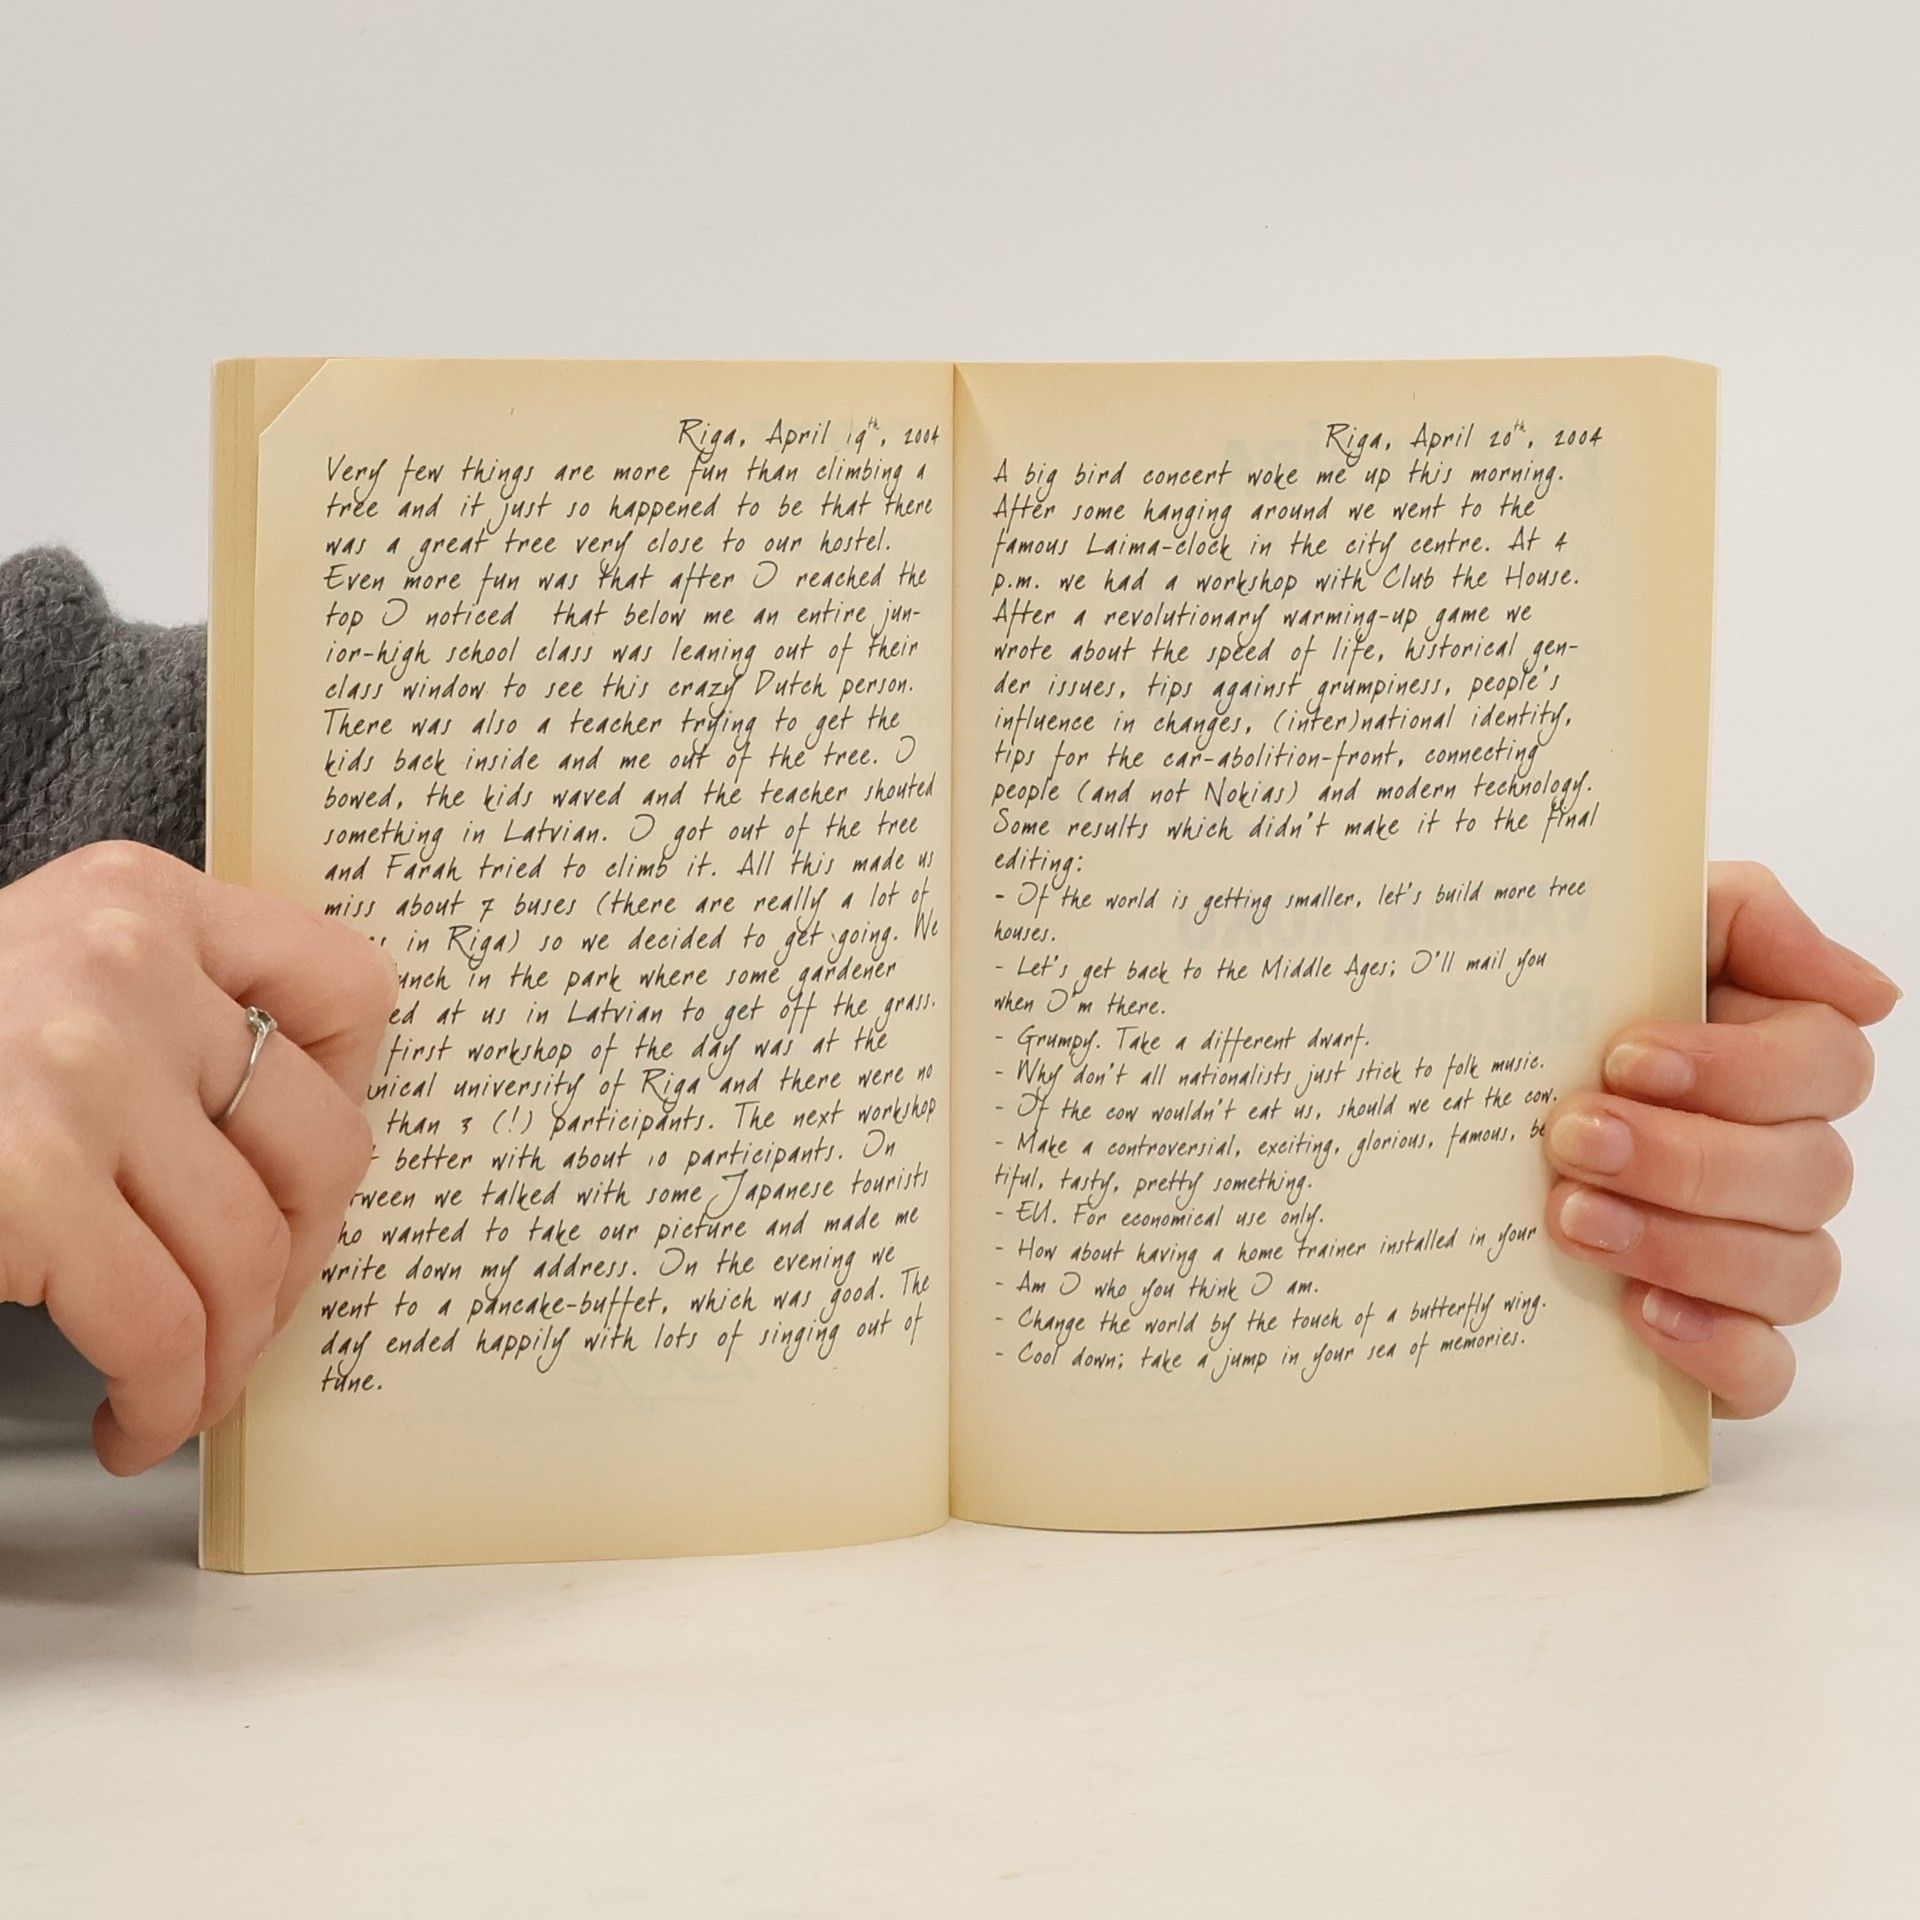 Riga, April 19th, 2004
Very few things are more fun than climbing a
tree and it just so happened to be that there
was a great tree very close to our hostel.
Even more fun was that after I reached the
top I noticed that below me an entire jun-
ior-high school class was leaning out of their
class window to see this crazy Dutch person.
There was also a teacher trying to get the
kids back inside and me out of the tree. I
bowed, the kids waved and the teacher shouted
something in Latvian. I got out of the tree
and Farah tried to climb it. All this made us
miss about 7 buses (there are really a lot of
in Riga) so we decided to get going. We
in the park where some gardener
at us in Latvian to get off the grass.
first workshop of the day was at the
university of Riga and there were no
than 3 (!) participants. The next workshop
better with about 10 participants. On
we talked with some Japanese tourists
who wanted to take our picture and made me
write down my address. On the evening we
went to a pancake-buffet, which was good. The
day ended happily with lots of singing out of
tune.
Riga, April 20th, 2004
A big bird concert woke me up this morning.
After some hanging around we went to the
famous Laima-clock in the city centre. At 4
p.m. we had a workshop with Club the House.
After a revolutionary warming-up game we
wrote about the speed of life, historical gen-
der issues, tips against grumpiness, people's
influence in changes, (inter)national identity,
tips for the car-abolition-front, connecting
people (and not Nokias) and modern technology.
Some results which didn't make it to the final
editing:
- If the world is getting smaller, let's build more tree
houses.
- Let's get back to the Middle Ages; I'll mail you
when I'm there.
- Grumpy. Take a different dwarf.
- Why don't all nationalists just stick to folk music.
- If the cow wouldn't eat us, should we eat the cow.
- Make a controversial, exciting, glorious, famous,
tiful, tasty, pretty something.
- EU. For economical use only.
- How about having a home trainer installed in your
- Am I who you think I am.
- Change the world by the touch of a butterfly wing.
- Cool down; take a jump in your sea of memories.